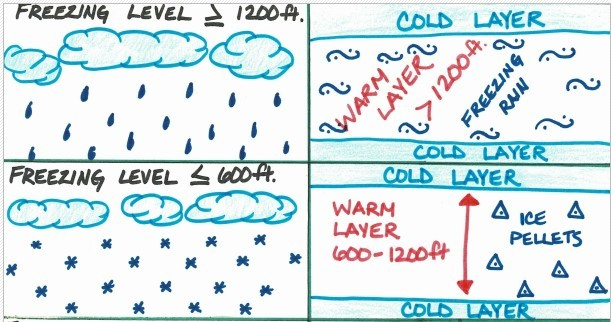 FREEZING LEVEL ≥ 1200ft.
COLD LAYER
WARM
LAYER
> 1200ft.
FREEZING
RAIN
COLD LAYER
FREEZING LEVEL ≤ 600ft.
COLD LAYER
WARM
LAYER
600-1200ft
ICE
PELLETS
COLD LAYER